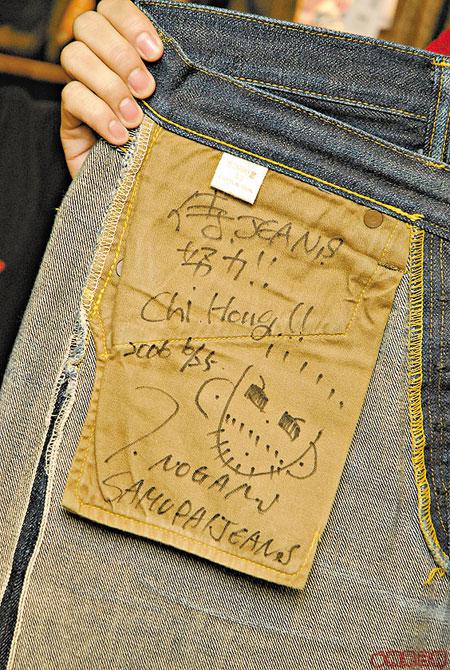 侍.JEANS
努力!!
Chi Hong.!!
2006 6/25
T.NOGAMI
SAMURAI JEANS